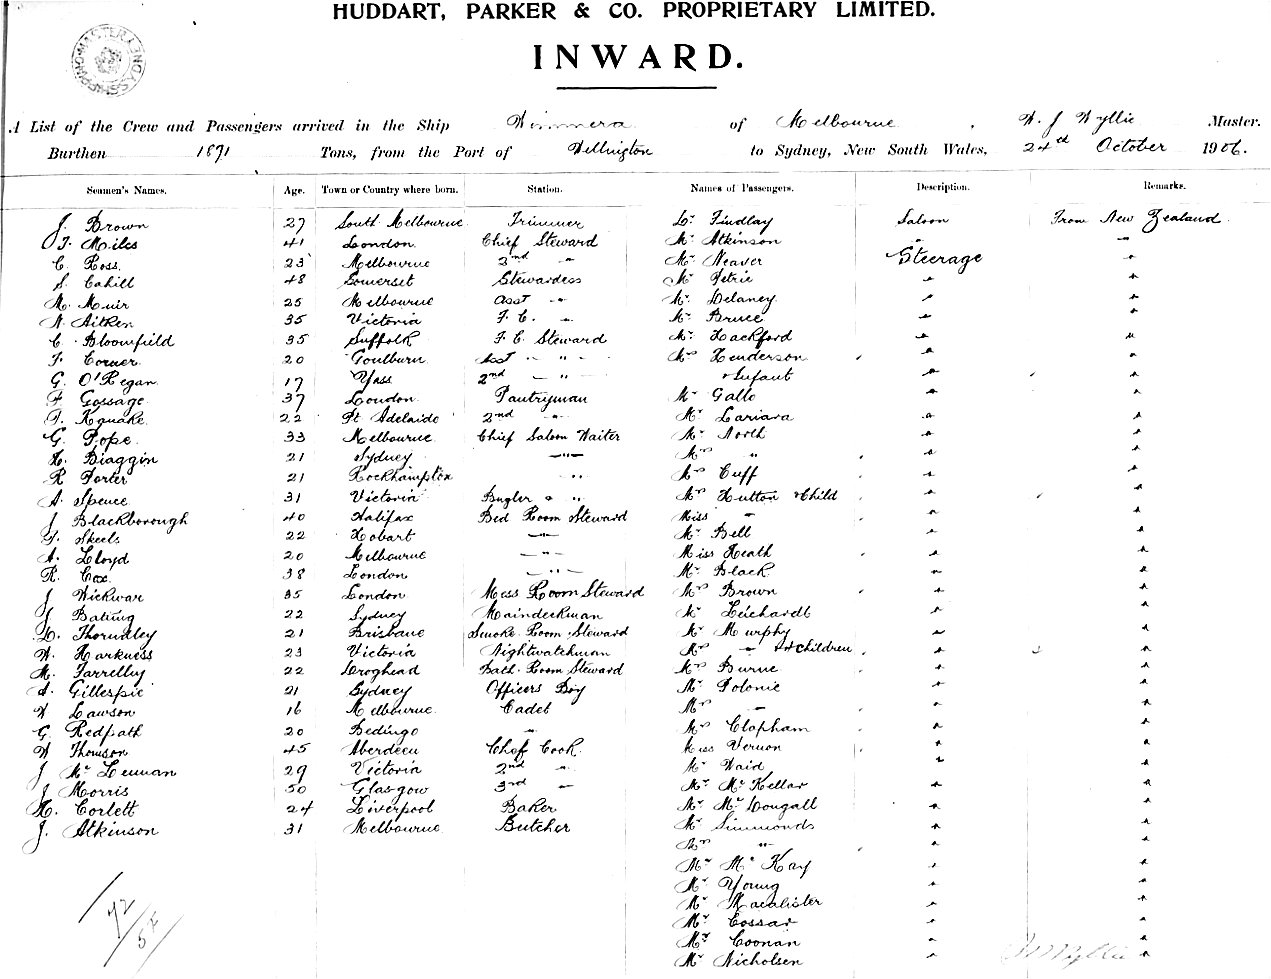 HUDDART, PARKER & CO. PROPRIETARY LIMITED.
INWARD.
SHIPPING MASTER SYDNEY
A List of the Crew and Passengers arrived in the Ship Wimmera of Melbourne, W. J Wyllie Master.
Burthen 1871 Tons, from the Port of Wellington to Sydney, New South Wales, 24th October 1906.
Seamen's Names. Age. Town or Country where born. Station. Names of Passengers. Description. Remarks.
J. Brown 27 South Melbourne Trimmer Dr Findlay Saloon From New Zealand
T. Miles 41 London Chief Steward Mr Atkinson " "
C. Ross 23 Melbourne 2nd " Mr Weaver Steerage "
S. Cahill 48 Somerset Stewardess Mr Petrie " "
M. Muir 25 Melbourne Asst " Mr Delaney " "
A. Aitken 35 Victoria F. C. " Mr Bruce " "
C. Bloomfield 35 Suffolk F. C. Steward Mr Hackford " "
F. Corner 20 Goulburn Asst " " Mrs Henderson " "
G. O'Regan 17 Yass 2nd " " & Infant " "
F. Gossage 37 London Pantryman Mr Gallo " "
22 Pt Adelaide 2nd " Mr Lariara " "
G. Pope 33 Melbourne Chief Saloon Waiter Mr North " "
H. Biaggin 21 Sydney " Mrs " " "
R Porter 21 Rockhampton " Mrs Cuff " "
A. Spence 31 Victoria Bugler & " Mrs Hutton & Child " "
J Blackborough 40 Halifax Bed Room Steward Miss " " "
F. Skeels 22 Hobart " Mr Bell " "
A. Lloyd 20 Melbourne " Miss Heath " "
R. Cox 38 London " Mr Black " "
J Wickwar 35 London Mess Room Steward Mrs Brown " "
J Bating 22 Sydney Maindeckman Mr Leichardt " "
D. Thorndley 21 Brisbane Smoke Room Steward Mr Murphy " "
W. Harkness 23 Victoria Nightwatchman Mrs " & 4 children " "
M. Farrelly 22 Droghead Bath Room Steward Mrs Burne " "
A. Gillespie 21 Sydney Officers Boy Mr Polonie " "
W Lawson 16 Melbourne Cadet Mrs " " "
G. Redpath 20 Bedingo " Mrs Clapham " "
W Thomson 45 Aberdeen Chef Cook Miss Vernon " "
J McLennan 29 Victoria 2nd " Mr Waid " "
J Morris 50 Glasgow 3rd " Mr McKellar " "
H. Corlett 24 Liverpool Baker Mr McDougall " "
J. Atkinson 31 Melbourne Butcher Mr Simmonds " "
Mrs " " "
Mr McKay " "
Mr Young " "
Mr Macalister " "
Mr Cossar " "
Mr Coonan " "
Mr Nicholsen " "
72
52
W J Wyllie